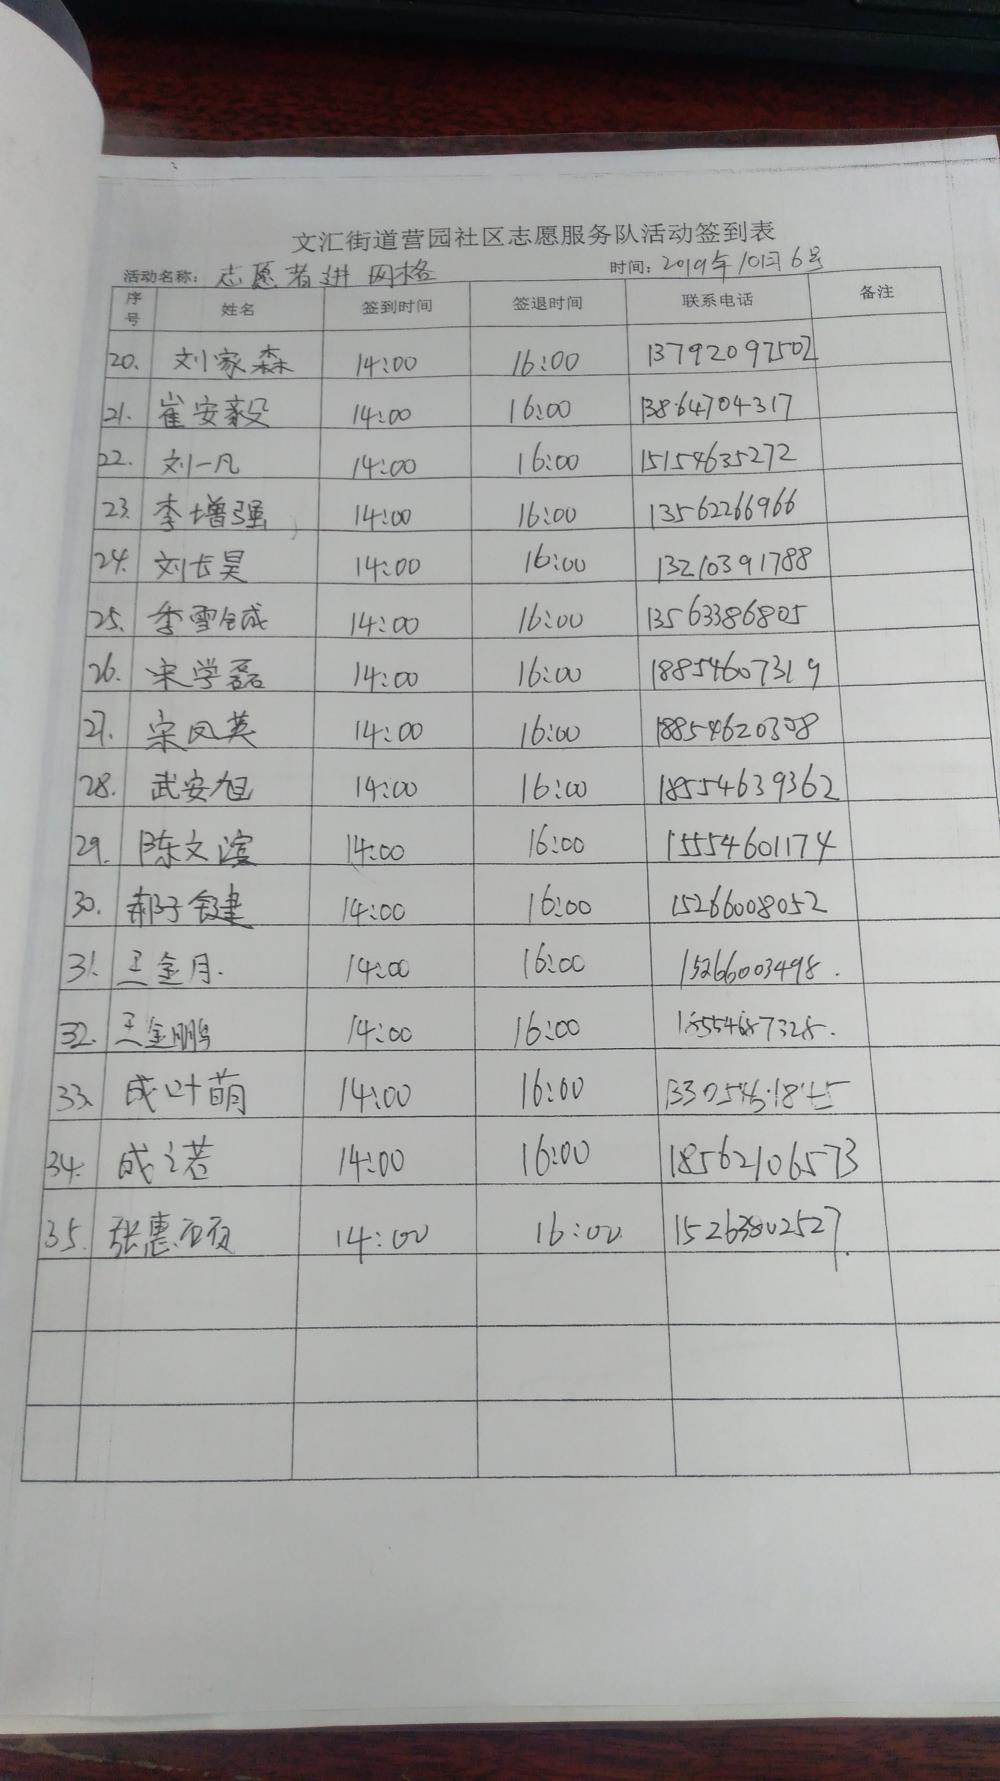 文汇街道营园社区志愿服务队活动签到表
活动名称：志愿者进网格 时间：2019年10月6号
序号 姓名 签到时间 签退时间 联系电话 备注
20. 刘家森 14:00 16:00 13792097502
21. 崔安毅 14:00 16:00 13864704317
22. 刘一凡 14:00 16:00 15154635272
23. 李增强 14:00 16:00 13562266966
24. 刘长昊 14:00 16:00 13210391788
25. 季雪铖 14:00 16:00 13563386805
26. 宋学磊 14:00 16:00 18854607319
27. 宋凤英 14:00 16:00 18854620308
28. 武安旭 14:00 16:00 18554639362
29. 陈文滨 14:00 16:00 15554601174
30. 郝子键 14:00 16:00 15266008052
31. 王金月. 14:00 16:00 15266003498.
32. 王金鹏 14:00 16:00 18554687328.
33. 成叶萌 14:00 16:00
34. 成之若 14:00 16:00 18562106573
35. 张惠 14:00 16:00 15263802527.